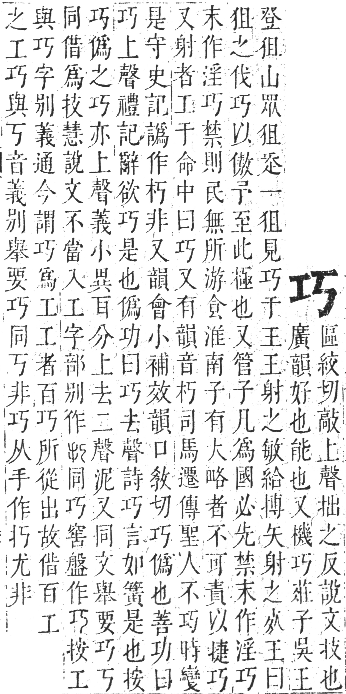 巧
區絞切敲上聲拙之反說文技也
廣韻好也能也又機巧莊子吳王
登狙山眾狙一狙見巧于王王射之敏給搏矢射之王曰
狙之伐巧以傲予至此極也又管子凡爲國必先禁末作淫巧
末作淫巧禁則民無所游食淮南子有大略者不可責以捷巧
又射者工于命中曰巧又有韻音朽司馬遷傳聖人不巧時變
是守史記譌作朽非又韻會小補效韻口敎切巧僞也善功曰
巧上聲禮記辭欲巧是也僞功曰巧去聲詩巧言如簧是也按
巧僞之巧亦上聲義小異百分上去二聲泥又同文舉要巧丂
同借爲技慧說文不當入工字部别作同巧窖盤作按工
與巧字别義通今謂巧爲工工者百巧所從出故借百工
之工巧與丂音義别舉要巧同丂非巧从手作尤非